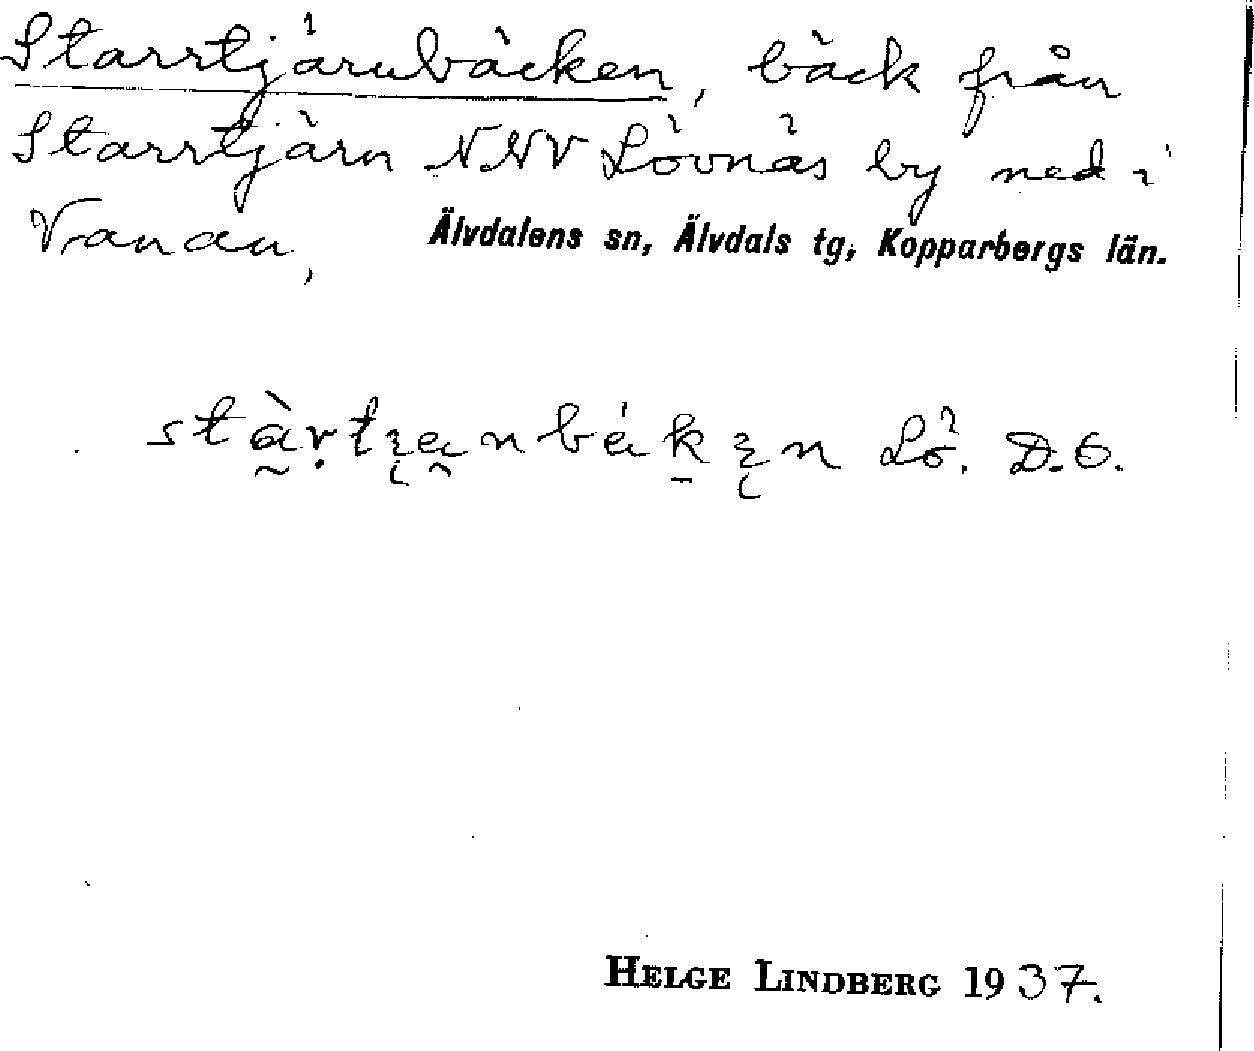 Starrtjärnbäcken, bäck från
Starrtjärn NNV Lövnäs by ned i
Vanan, Älvdalens sn, Älvdals tg, Kopparbergs län.
Lö. D.O.
HELGE LINDBERG 1937.